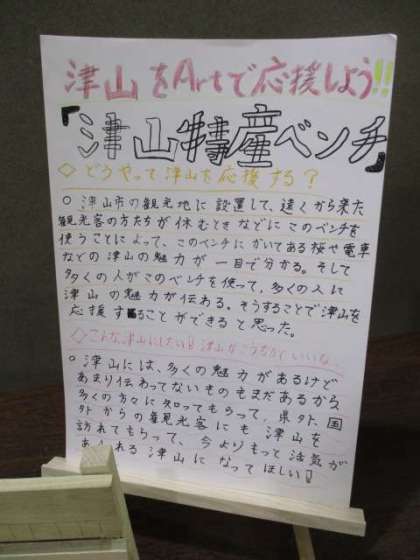 津山をArtで応援しよう!!
「津山特産ベンチ」
◇どうやって津山を応援する?
○津山市の観光地に設置して、遠くから来た
観光客の方たちが休むときなどにこのベンチを
使うことによって、このベンチにかいてある桜や電車
などの津山の魅力が一目で分かる。そして
多くの人がこのベンチを使って、多くの人に
津山の魅力が伝わる。そうすることで津山を
応援することができると思った。
◇こんな津山にしたい!津山がこうなるといいな。
○津山には、多くの魅力があるけど
あまり伝わってないものもまだあるから、
多くの方々に知ってもらって、県外、国
外からの観光客にも津山を
訪れてもらって、今よりもっと活気が
あふれる津山になってほしい!